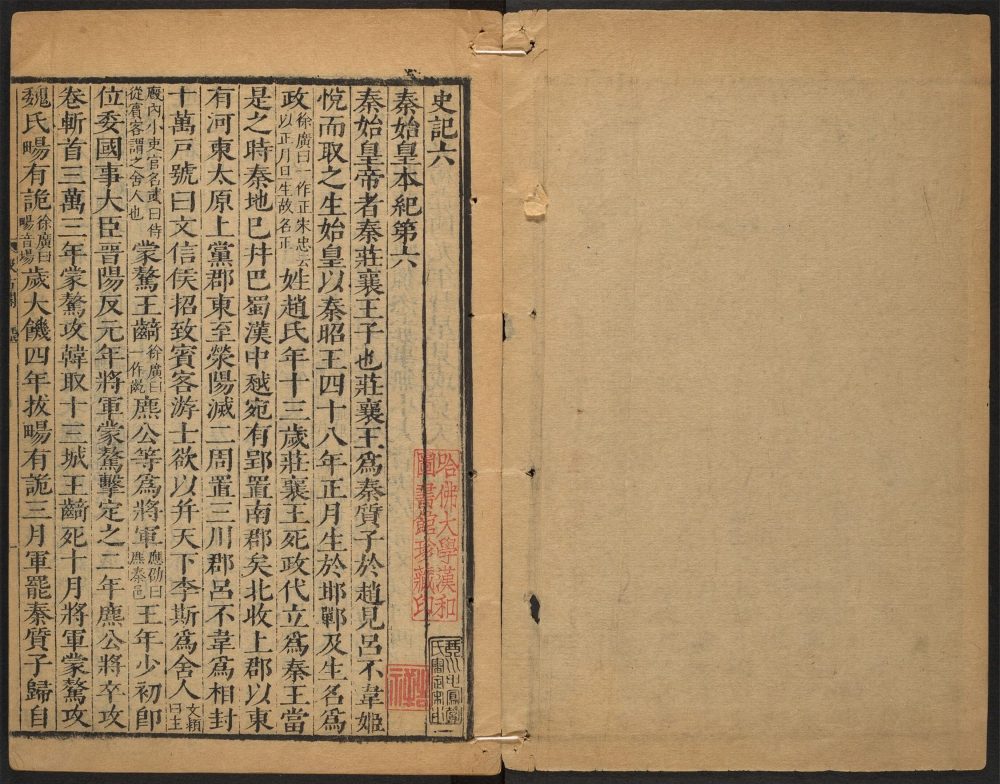 史記六
秦始皇本紀第六
秦始皇帝者秦莊襄王子也莊襄王爲秦質子於趙見呂不韋姬
悅而取之生始皇以秦昭王四十八年正月生於邯鄲及生名爲
政徐廣曰一作正朱忠云以正月旦生故名正姓趙氏年十三歲莊襄王死政代立爲秦王當
是之時秦地已幷巴蜀漢中越宛有郢置南郡矣北收上郡以東
有河東太原上黨郡東至滎陽滅二周置三川郡呂不韋爲相封
十萬戶號曰文信侯招致賓客游士欲以幷天下李斯爲舍人文穎曰主
廄內小吏官名或曰侍從賓客謂之舍人也蒙驁王齮徐廣曰一作齕麃公等爲將軍應劭曰麃秦邑王年少初卽
位委國事大臣晉陽反元年將軍蒙驁擊定之二年麃公將卒攻
卷斬首三萬三年蒙驁攻韓取十三城王齮死十月將軍蒙驁攻
魏氏暘有詭徐廣曰暘音場歲大饑四年拔暘有詭三月軍罷秦質子歸自
哈佛大學漢和
圖書館珍藏印